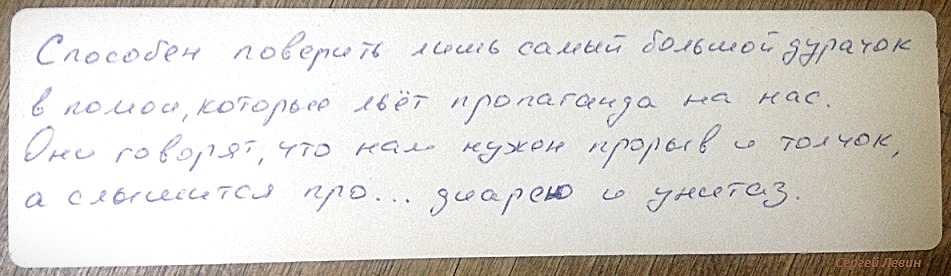 Способен поверить лишь самый большой дурачок
в помои, которые льёт пропаганда на нас.
Они говорят, что нам нужен прорыв и толчок,
а слышится про... диарею и унитаз.
Сергей Левин